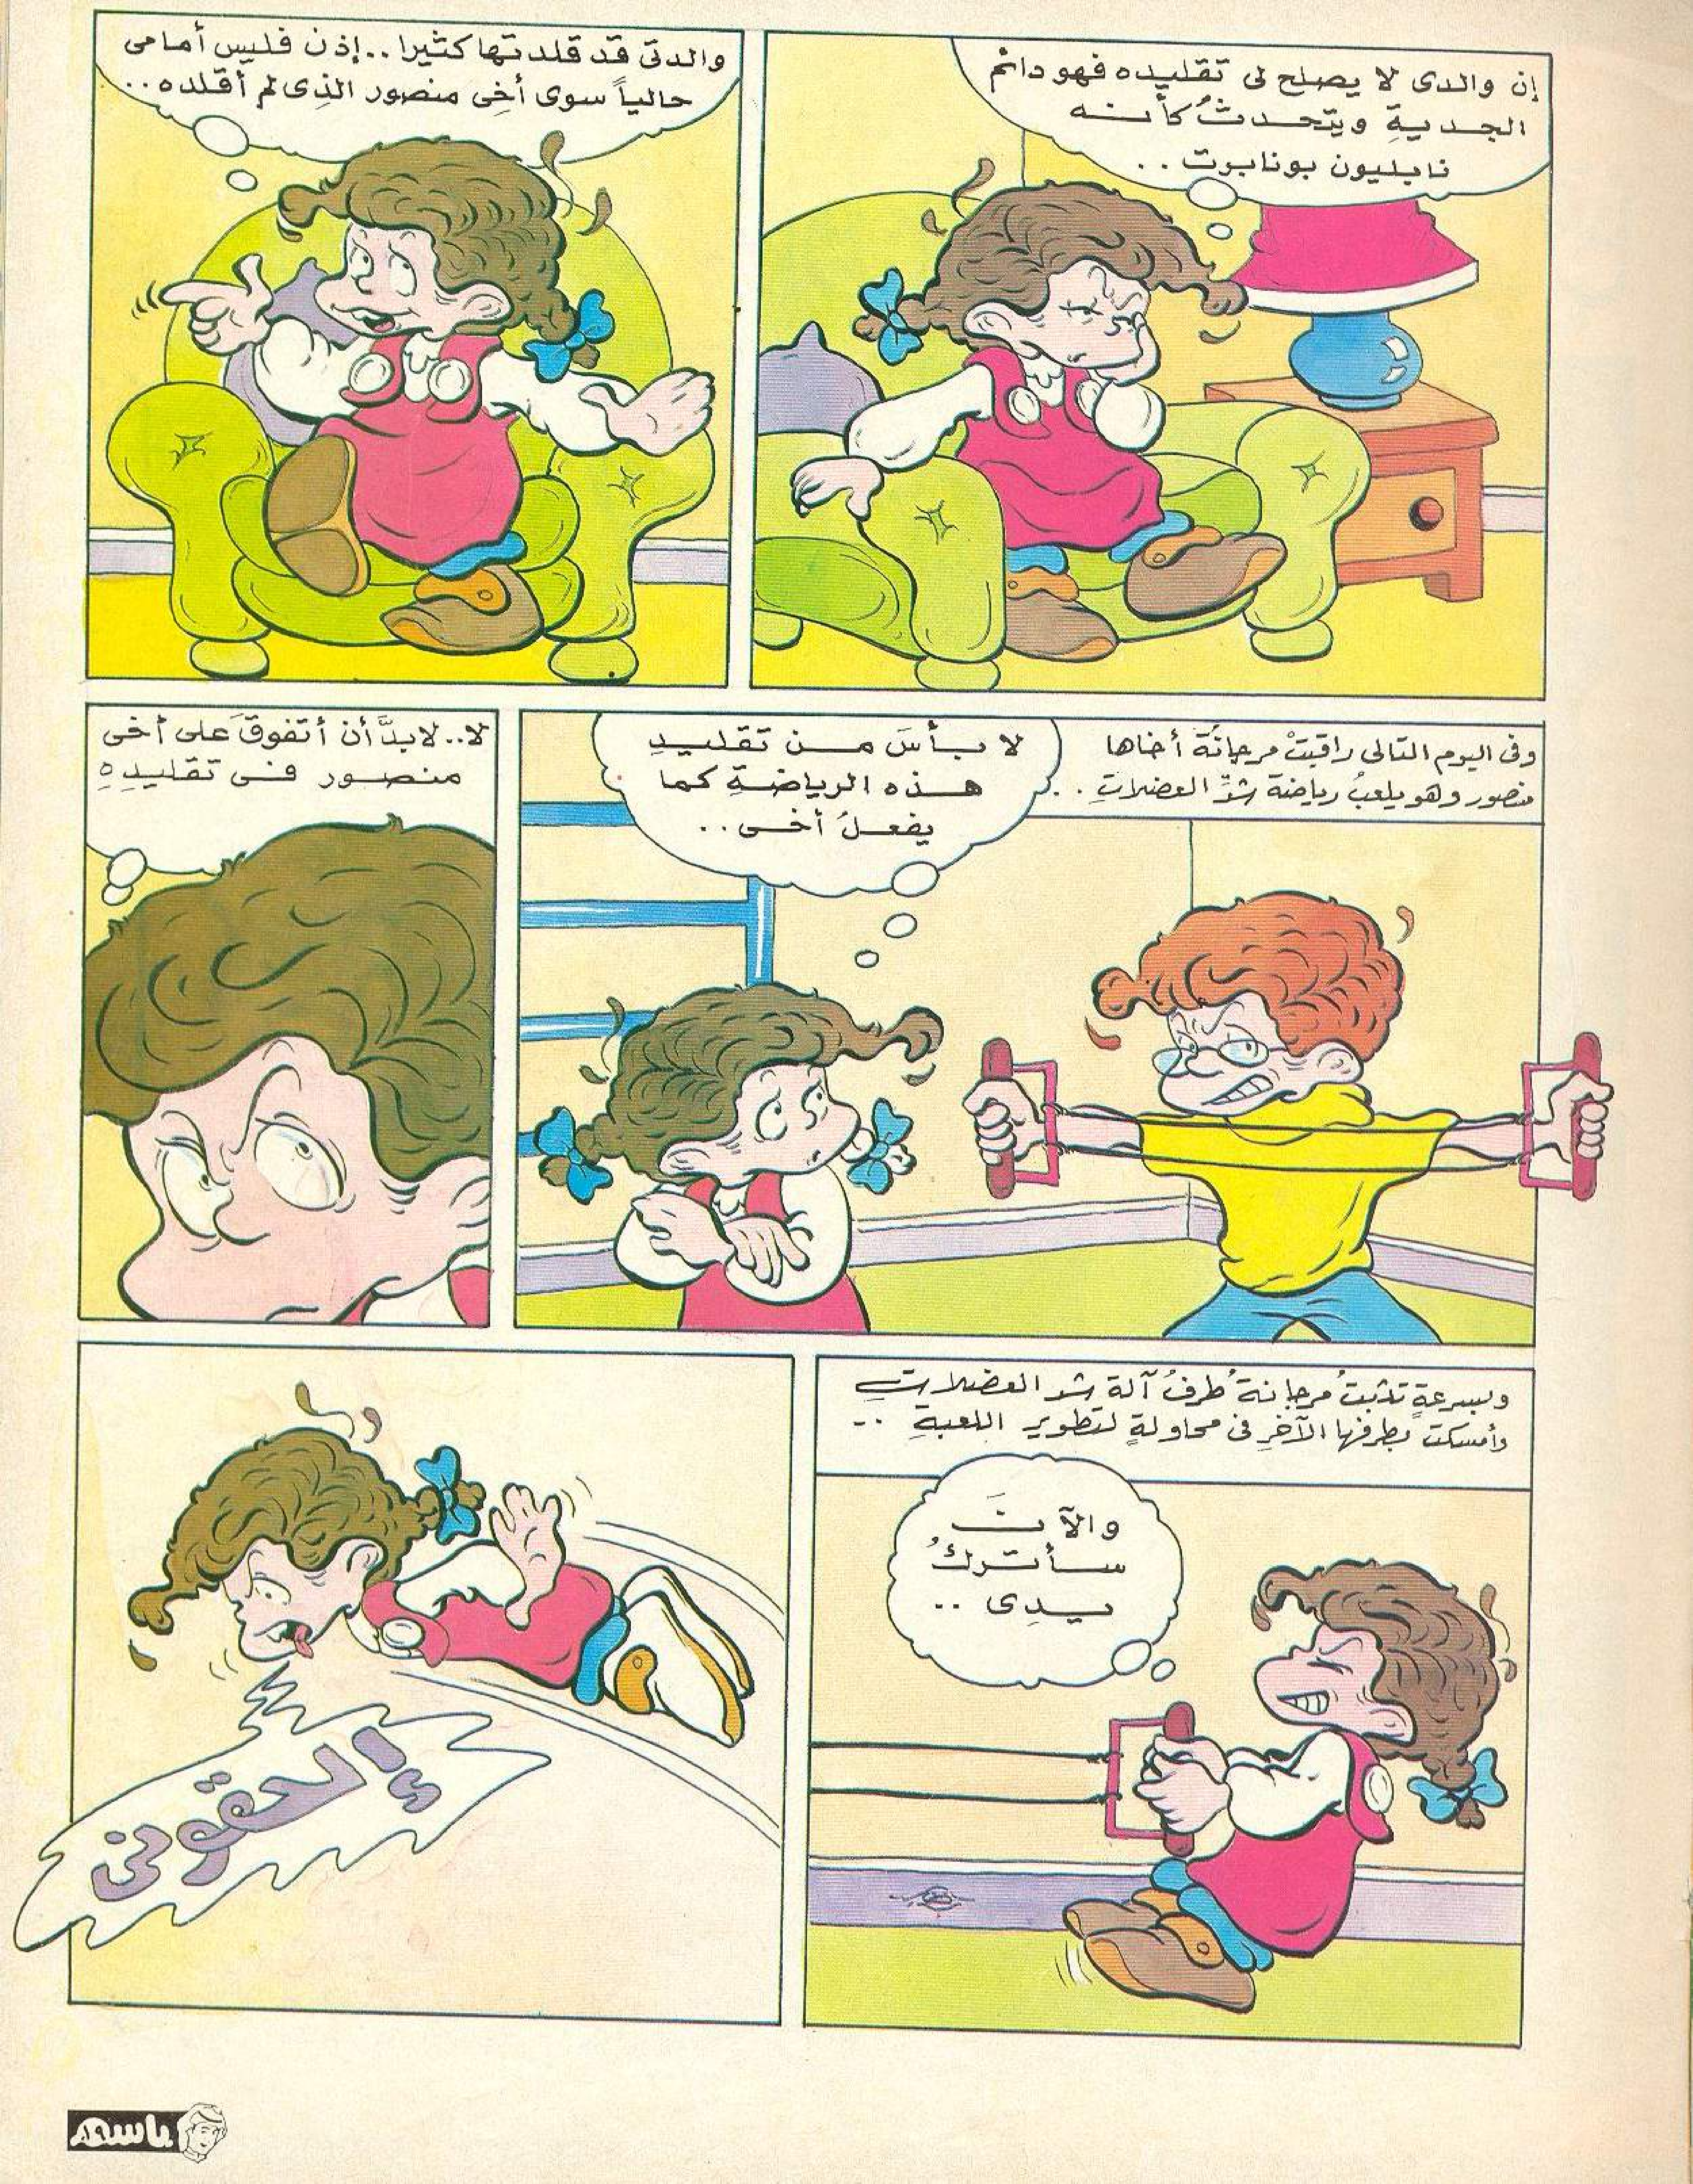 إن والدى لا يصلح لى تقليده فهو دائم
الجدية ويتحدثُ كأنه
نابليون بونابرت . .
والدتى قد قلدتها كثيرا . . إذن فليس أمامى
حالياً سوى أخِى منصور الذِى لم أقلده . .
وفى اليوم التالى راقبتْ مرجانَة أخاها
منصور وهو يلعبُ رياضة شدِّ العضلاتِ . .
لا بأسَ من تقليدِ
هذه الرياضةِ كما
يفعلُ أخى . .
لا . . لابدَّ أن أتفوقَ على أخى
منصور فى تقليدِهِ
وبسرعةٍ تثبتُ مرجانةُ طرفُ آلة شد العضلاتِ
وأمسكت بطرفها الآخرِ فى محاولةٍ لتطوير اللعبةِ . .
والآنَ
سأتركُ
يدِى . .
إلحقونى
باسم